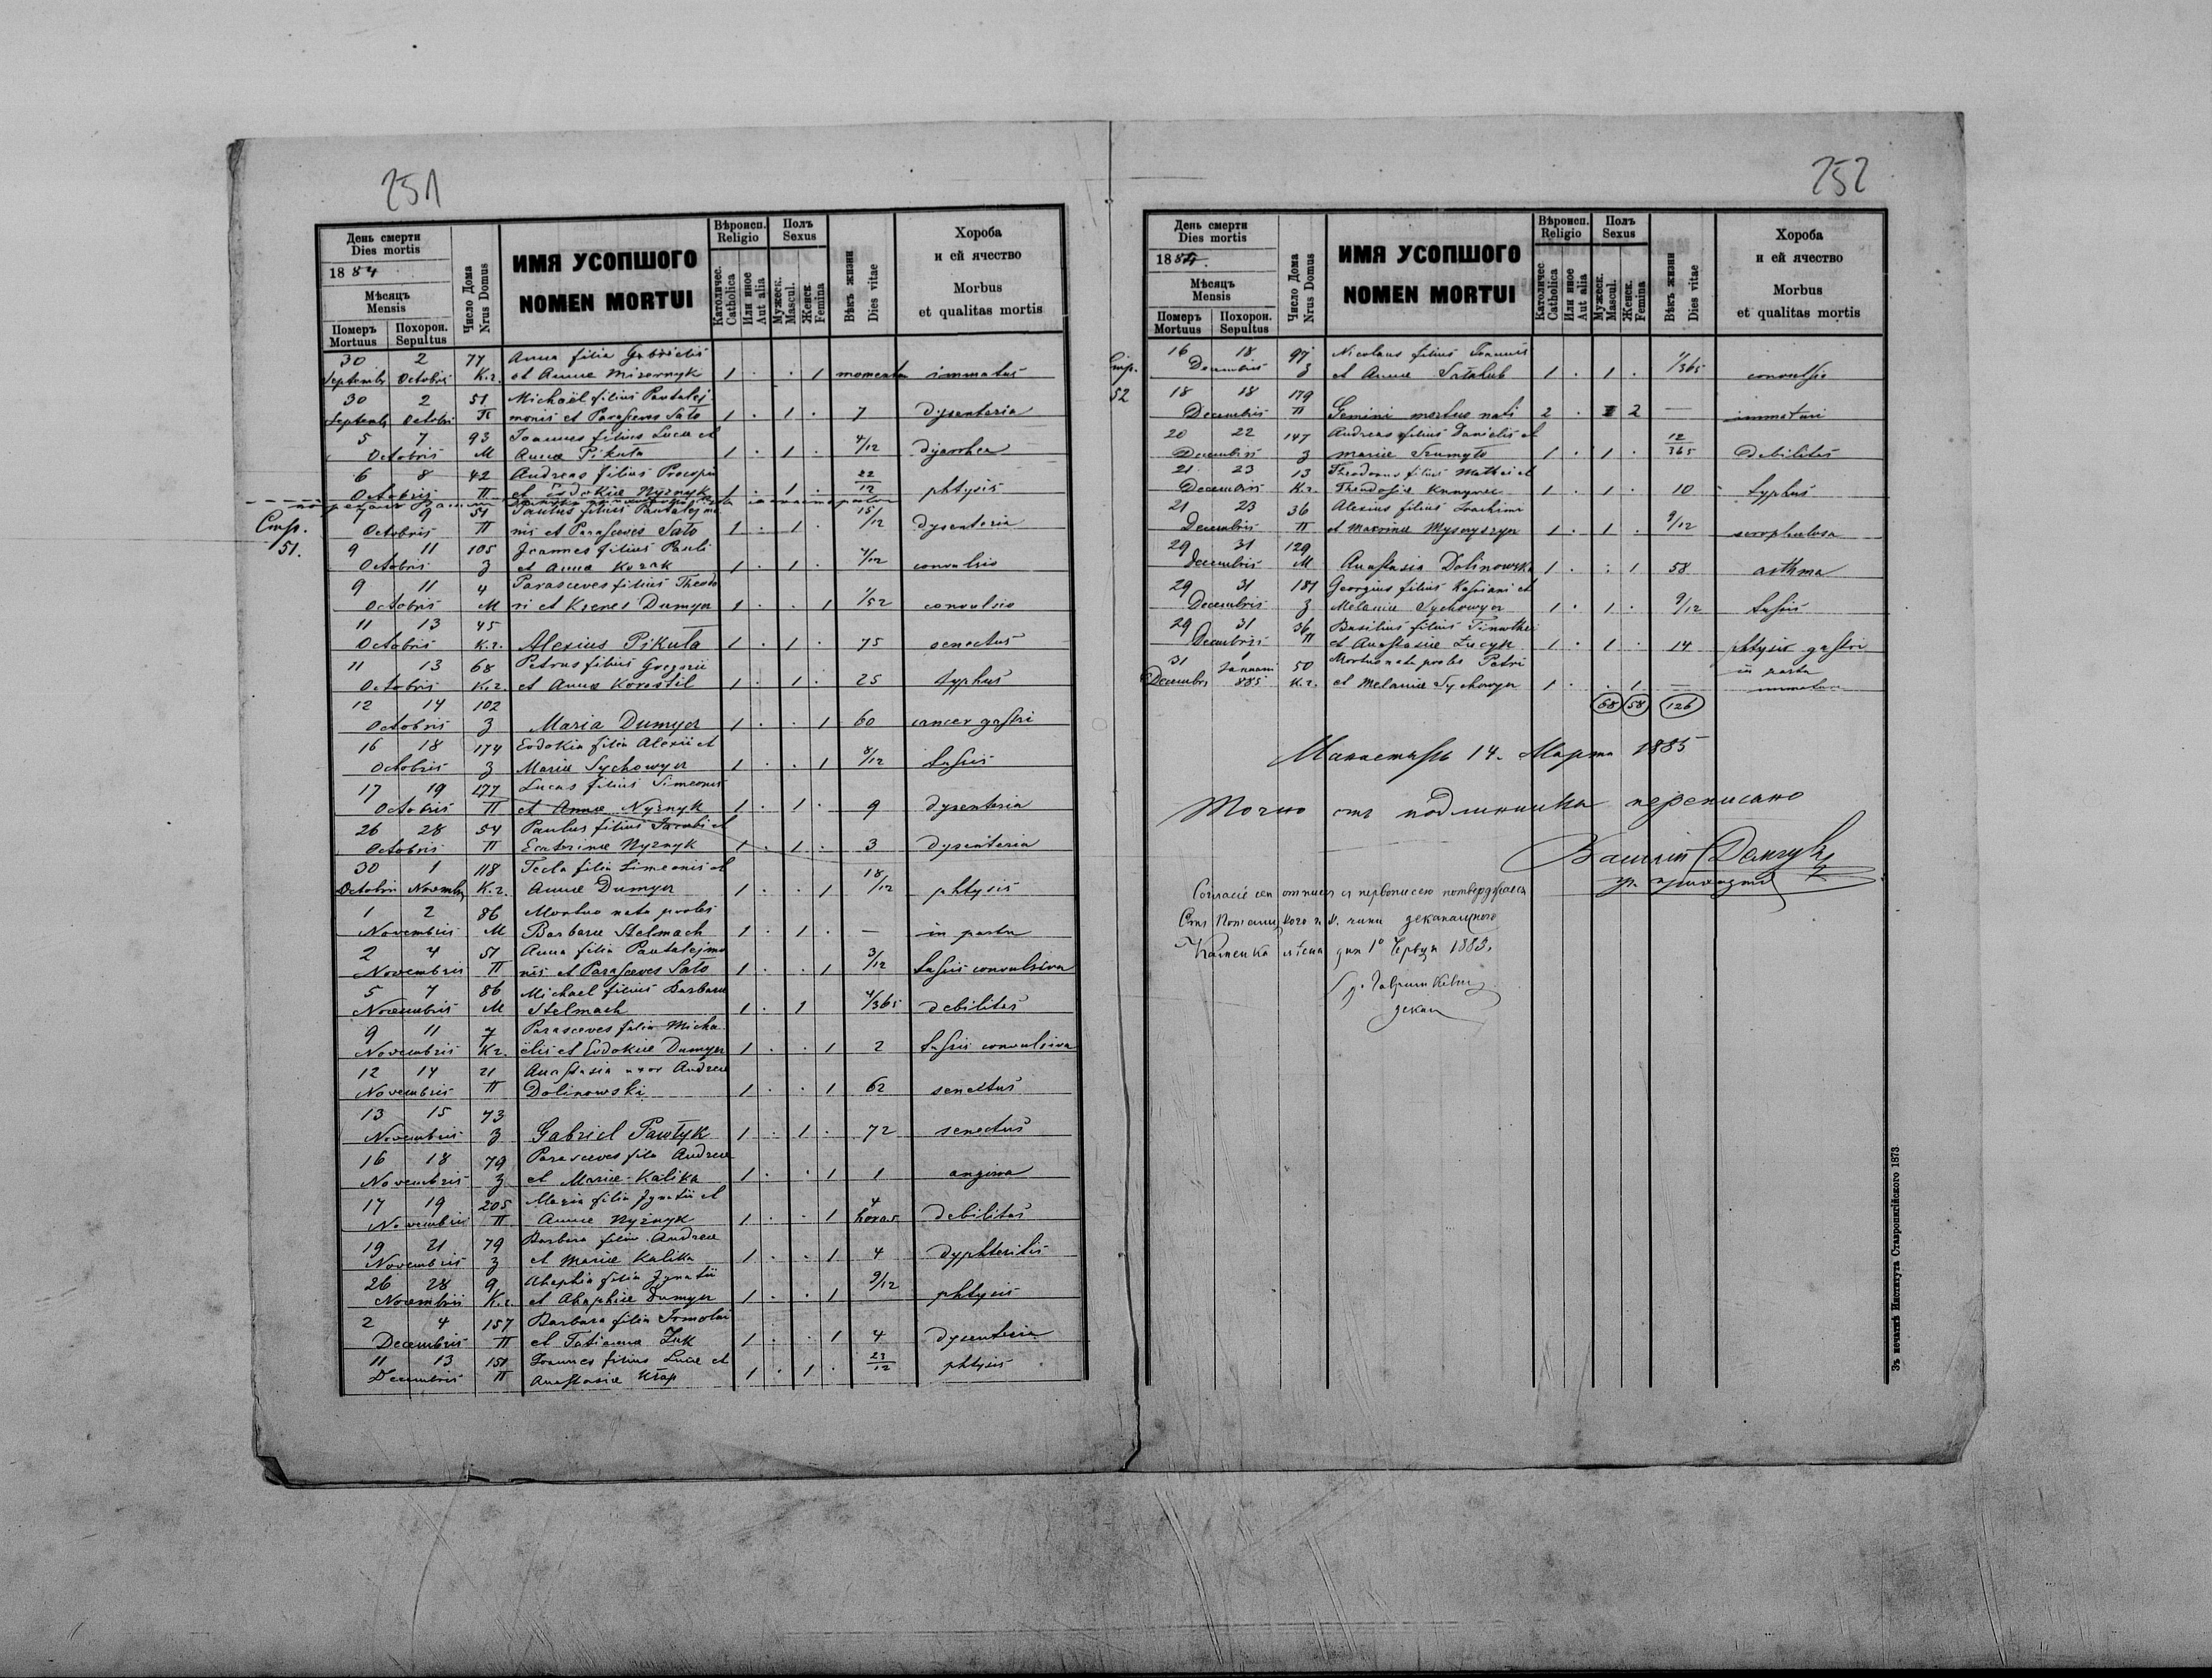 251
День смерти
Dies mortis
1884
Мѣсяцъ
Mensis
Померъ Похорон.
Mortuus Sepultus
Число Дома
Nrus Domus
ИМЯ УСОПШОГО
NOMEN MORTUI
Вѣроисп.
Religio
Католичес.
Catholica
Или иное
Aut alia
Полъ
Sexus
Мужеск.
Mascul.
Женск.
Femina
Вѣкъ жизни
Dies vitae
Хороба
и ей ячество
Morbus
et qualitas mortis
30 2 77 Anna filia Gabrielis
Septembr Octobris K.r. et Annae Mizernyk 1 . . 1 momentum immatus
30 2 51 Michaël filius Pantalej
Septembr Octobris П monis et Parasceves Sato 1 . 1 . 7 dysenteria
5 7 93 Joannes filius Lucae et
Octobris M Annae Pikuła 1 . 1 . 4/12 dyarrhea
6 8 42 Andreas filius Procopii
Octobris П et Eudokiae Nyznyk 1 . 1 . 22/12 phtysis
Стр.
51.
7 9 51 Paulus filius Pantalejmo
Octobris П nis et Parasceves Sato 1 . 1 . 15/12 dysenteria
9 11 105 Joannes filius Pauli
Octobris З et Annae Kozak 1 . 1 . 4/12 convulsio
9 11 4 Parasceves filius Theodo
Octobris M ri et Xeniei Dumycz 1 . . 1 1/52 convulsio
11 13 45
Octobris K.r. Alexius Pikuła 1 . 1 . 75 senectus
11 13 68 Petrus filius Gregorii
Octobris K.r. et Annae Korostil 1 . 1 . 25 typhus
12 14 102
Octobris З Maria Dumycz 1 . . 1 60 cancer gastri
16 18 174 Eudokia filia Alexii et
Octobris З Mariae Sychowycz 1 . . 1 8/12 tussis
17 19 177 Lucas filius Simeonis
Octobris П et Annae Nyznyk 1 . 1 . 9 dysenteria
26 28 54 Paulus filius Jacobi et
Octobris П Ecaterinae Nyznyk 1 . 1 . 3 dysenteria
30 1 118 Tecla filia Simeonis et
Octobris Novembr K.r. Annae Dumycz 1 . . 1 18/12 phtysis
1 2 86 Mortuo nata proles
Novembris M Barbarae Stelmach 1 . 1 . — in partu
2 4 51 Anna filia Pantalejmo
Novembris П nis et Parasceves Sato 1 . . 1 3/12 tussis convulsiva
5 7 86 Michael filius Barbarae
Novembris M Stelmach 1 . 1 4/365 debilitas
9 11 7 Parasceves filia Micha
Novembris K.r. ëlis et Eudokiae Dumycz 1 . . 1 2 tussis convulsiva
12 14 21 Anastasia uxor Andreae
Novembris П Dolinowski 1 . . 1 62 senectus
13 15 73
Novembris З Gabriel Pawłyk 1 . 1 . 72 senectus
16 18 79 Parasceves filia Andreae
Novembris З et Mariae Kalika 1 . . 1 1 angina
17 19 205 Maria filia Ignatii et
Novembris П Annae Nyznyk 1 . . 1 4 horas debilitas
19 21 79 Barbara filia Andreae
Novembris З et Mariae Kalika 1 . . 1 4 dyphteritis
26 28 9 Ahaphia filia Ignatii
Novembris K.r. et Ahaphiae Dumycz 1 . . 1 9/12 phtysis
2 4 157 Barbara filia Jrmolai
Decembris П et Tatianae Żuk 1 . . 1 4 dysenteria
11 13 151 Joannes filius Lucae et
Decembris П Anastasiae Kłap 1 . 1 . 23/12 phtysis
252
День смерти
Dies mortis
1884.
Мѣсяцъ
Mensis
Померъ Похорон.
Mortuus Sepultus
Число Дома
Nrus Domus
ИМЯ УСОПШОГО
NOMEN MORTUI
Вѣроисп.
Religio
Католичес
Catholica
Или иное
Aut alia
Полъ
Sexus
Мужеск.
Mascul.
Женск.
Femina
Вѣкъ жизни
Dies vitae
Хороба
и ей ячество
Morbus
et qualitas mortis
Стр.
52
16 18 97 Nicolaus filius Joannis
Decembris З et Annae 1 . 1 . 1/365 convulsio
18 18 179
Decembris П Gemini mortuo nati 2 . 2 — immaturi
20 22 147 Andreas filius Danielis et
Decembris З Mariae Szumyło 1 . 1 . 12/365 debilitas
21 23 13 Theodorus filius Mathei et
Decembris K.r. Theodosiae 1 . 1 . 10 typhus
21 23 36 Alexius filius Joachimi
Decembris П et Marinae Mysnyszyn 1 . 1 . 9/12 scrophulosa
29 31 129
Decembris M Anastasia Dolinowska 1 . . 1 58 asthma
29 31 181 Georgius filius Kassiani et
Decembris З Melaniae Sychowycz 1 . 1 . 9/12 tussis
29 31 36 Basilius filius Timothei
Decembris П et Anastasiae Lucyk 1 . 1 . 14 phtysis gastri
31 Januarii 50 Mortuo nata proles Petri in partu
Decembris 885 K.r. et Melaniae Sychowycz 1 . . 1 — immatura
68 58 126
Манастырь 14. Марта 1885
Точно съ подлинника переписано
Василій
гр. приходникъ
Согласіе сей отписи съ первописею потверджается
Каменка дня 1º Червця 1885.
декан
Зъ печатнѣ Института Ставропигійского 1873